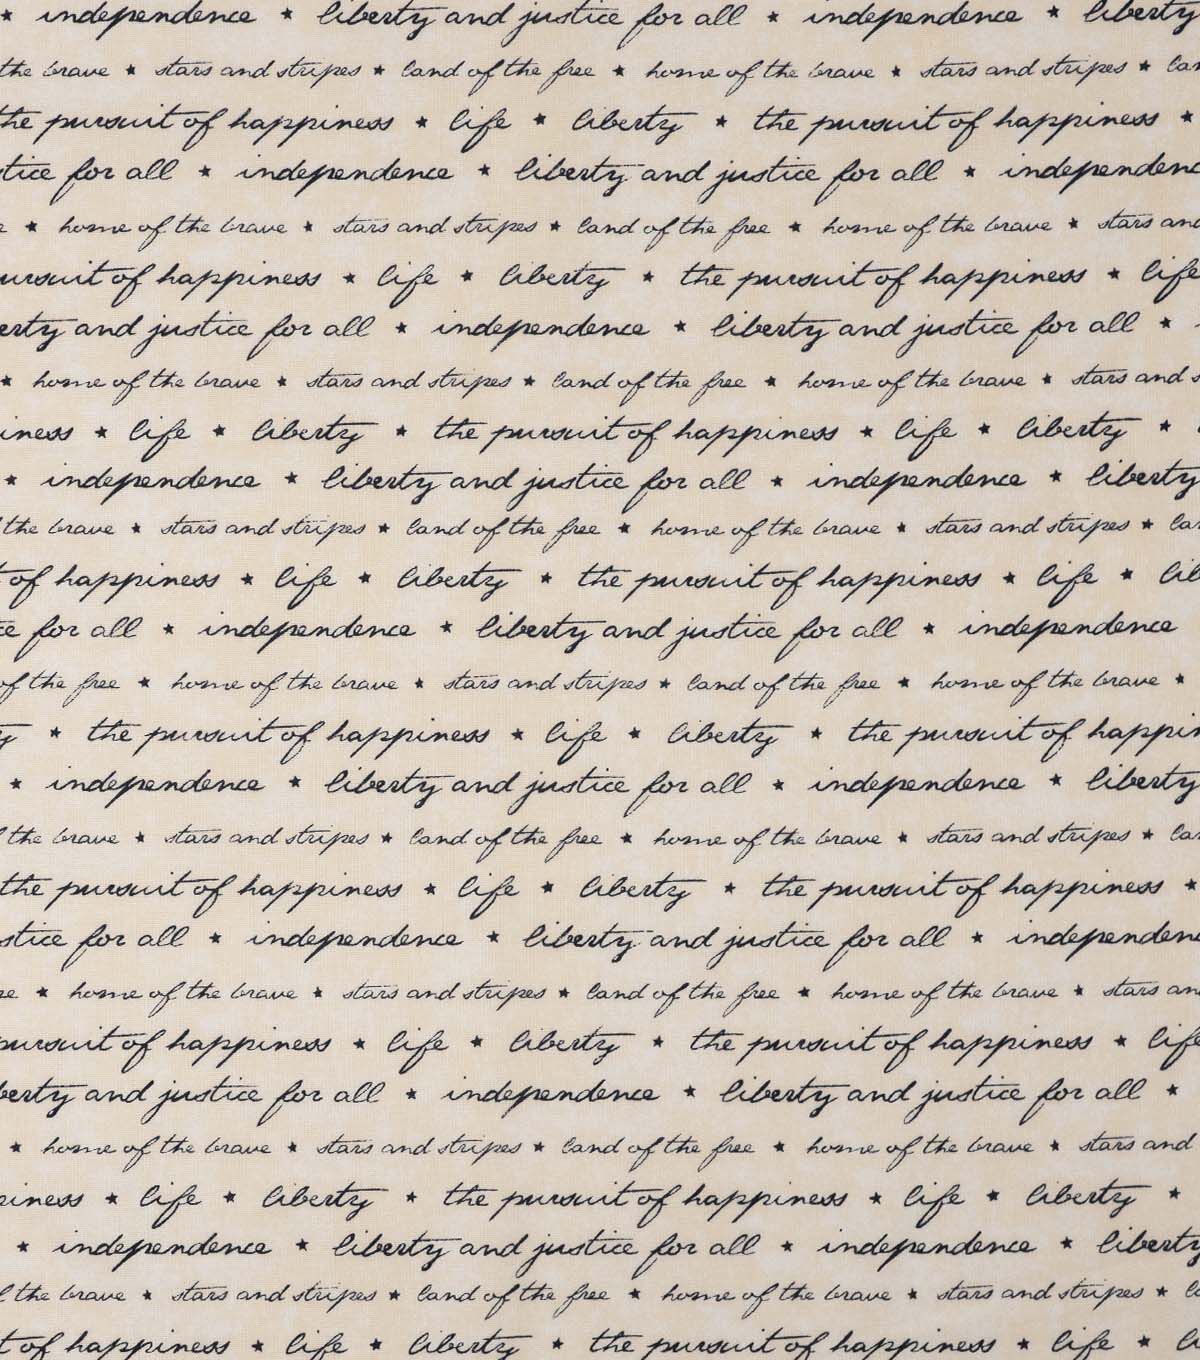 ★ independence ★ liberty and justice for all ★ independence ★ liberty
the brave ★ stars and stripes ★ land of the free ★ home of the brave ★ stars and stripes ★ lan
the pursuit of happiness ★ life ★ liberty ★ the pursuit of happiness ★
tice for all ★ independence ★ liberty and justice for all ★ independenc
e ★ home of the brave ★ stars and stripes ★ land of the free ★ home of the brave ★ stars and
ursuit of happiness ★ life ★ liberty ★ the pursuit of happiness ★ life
erty and justice for all ★ independence ★ liberty and justice for all ★
★ home of the brave ★ stars and stripes ★ land of the free ★ home of the brave ★ stars and s
iness ★ life ★ liberty ★ the pursuit of happiness ★ life ★ liberty ★
★ independence ★ liberty and justice for all ★ independence ★ liberty
the brave ★ stars and stripes ★ land of the free ★ home of the brave ★ stars and stripes ★ lan
t of happiness ★ life ★ liberty ★ the pursuit of happiness ★ life ★ lib
ce for all ★ independence ★ liberty and justice for all ★ independence
of the free ★ home of the brave ★ stars and stripes ★ land of the free ★ home of the brave ★
y ★ the pursuit of happiness ★ life ★ liberty ★ the pursuit of happin
★ independence ★ liberty and justice for all ★ independence ★ liberty
the brave ★ stars and stripes ★ land of the free ★ home of the brave ★ stars and stripes ★ lan
the pursuit of happiness ★ life ★ liberty ★ the pursuit of happiness ★
stice for all ★ independence ★ liberty and justice for all ★ independenc
ve ★ home of the brave ★ stars and stripes ★ land of the free ★ home of the brave ★ stars an
pursuit of happiness ★ life ★ liberty ★ the pursuit of happiness ★ life
berty and justice for all ★ independence ★ liberty and justice for all ★
★ home of the brave ★ stars and stripes ★ land of the free ★ home of the brave ★ stars and
piness ★ life ★ liberty ★ the pursuit of happiness ★ life ★ liberty ★
★ independence ★ liberty and justice for all ★ independence ★ liberty
the brave ★ stars and stripes ★ land of the free ★ home of the brave ★ stars and stripes ★ la
t of happiness ★ life ★ liberty ★ the pursuit of happiness ★ life ★ li